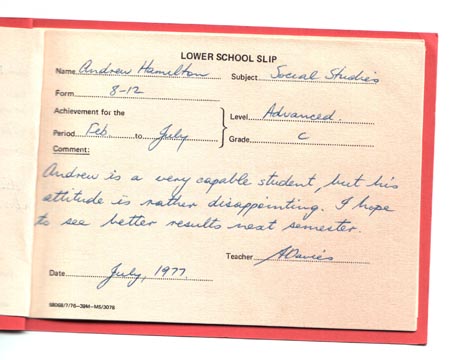 LOWER SCHOOL SLIP
Name Andrew Hamilton Subject Social Studies
Form 8-12
Achievement for the Level Advanced.
Period Feb to July Grade C
Comment:
Andrew is a very capable student, but his
attitude is rather disappointing. I hope
to see better results next semester.
Teacher ADavies
Date July, 1977.
58068/7/76-39M-MS/3076